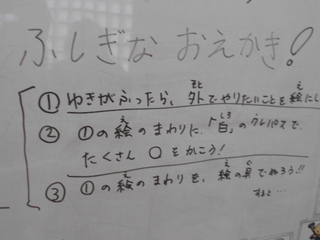 ふしぎな おえかき!
① ゆきがふったら、外でやりたいことを絵にし
② ①の絵のまわりに、「白」のクレパスで
たくさん ○をかこう!
③ ①の絵のまわりを、絵の具でぬろう!!
すると…